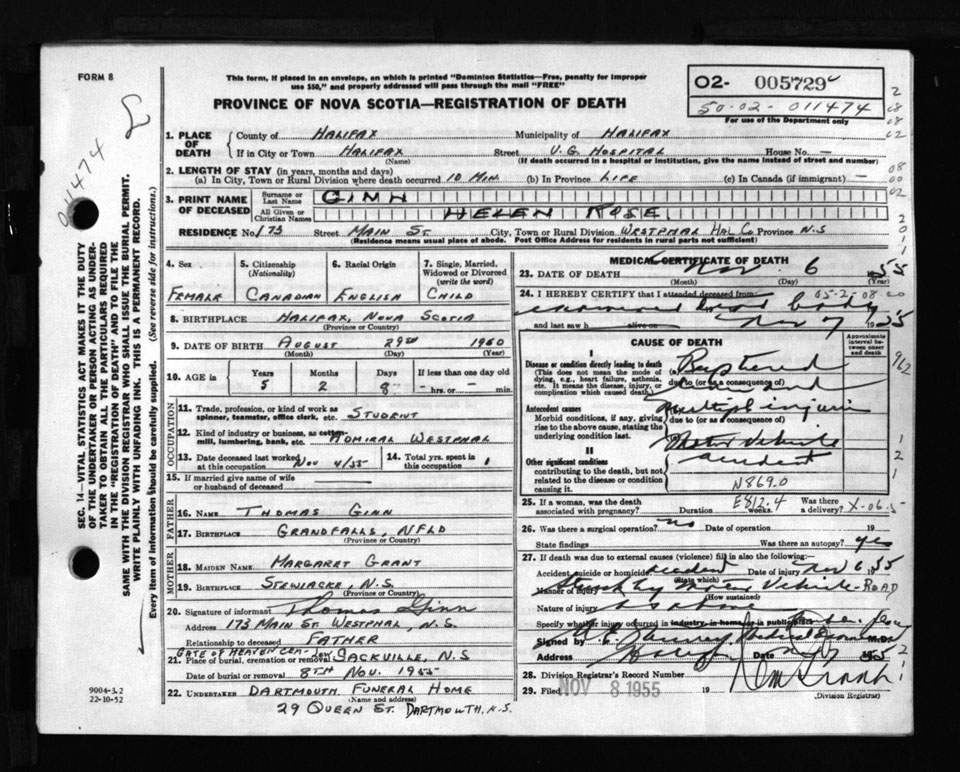 FORM 8
This form, if placed in an envelope, on which is printed "Dominion Statistics—Free, penalty for improper
use $50," and properly addressed will pass through the mail "FREE"
PROVINCE OF NOVA SCOTIA—REGISTRATION OF DEATH
02- 005729
50-02-011474
For use of the Department only
SEC. 14—VITAL STATISTICS ACT MAKES IT THE DUTY
OF THE UNDERTAKER OR PERSON ACTING AS UNDER-
TAKER TO OBTAIN ALL THE PARTICULARS REQUIRED
IN THE "REGISTRATION OF DEATH" AND TO FILE THE
SAME WITH THE DIVISION REGISTRAR WHO SHALL ISSUE THE BURIAL PERMIT.
WRITE PLAINLY WITH UNFADING INK. THIS IS A PERMANENT RECORD.
Every item of information should be carefully supplied. (See reverse side for instructions.)
1. PLACE OF DEATH
County of HALIFAX Municipality of HALIFAX
If in City or Town HALIFAX Street V.G. HOSPITAL House No. —
(Name) (If death occurred in a hospital or institution, give the name instead of street and number)
2. LENGTH OF STAY (in years, months and days)
(a) In City, Town or Rural Division where death occurred 10 MIN. (b) In Province LIFE (c) In Canada (if immigrant) —
3. PRINT NAME OF DECEASED
Surname or Last Name GINN
All Given or Christian Names HELEN ROSE
RESIDENCE No. 173 Street MAIN ST. City, Town or Rural Division WESTPHAL HAL CO Province N.S
(Residence means usual place of abode. Post Office Address for residents in rural parts not sufficient)
4. Sex FEMALE
5. Citizenship (Nationality) CANADIAN
6. Racial Origin ENGLISH
7. Single, Married, Widowed or Divorced (write the word) CHILD
8. BIRTHPLACE HALIFAX, NOVA SCOTIA
(Province or Country)
9. DATE OF BIRTH AUGUST 29TH 1950
(Month) (Day) (Year)
10. AGE in Years 5 Months 2 Days 8 If less than one day — hrs. or — min.
OCCUPATION
11. Trade, profession, or kind of work as spinner, teamster, office clerk, etc. STUDENT
12. Kind of industry or business, as cotton-mill, lumbering, bank, etc. ADMIRAL WESTPHAL
13. Date deceased last worked at this occupation NOV 4/55
14. Total yrs. spent in this occupation 1
15. If married give name of wife or husband of deceased
FATHER
16. NAME THOMAS GINN
17. BIRTHPLACE GRANDFALLS, NFLD
(Province or Country)
MOTHER
18. MAIDEN NAME MARGARET GRANT
19. BIRTHPLACE STEWIACKE, N.S.
(Province or Country)
20. Signature of informant Thomas Ginn
Address 173 MAIN ST. WESTPHAL, N.S.
Relationship to deceased FATHER
GATE OF HEAVEN CEM- LOW.
21. Place of burial, cremation or removal SACKVILLE, N.S
Date of burial or removal 8TH NOV. 1955
22. UNDERTAKER DARTMOUTH FUNERAL HOME
(Name and address)
29 QUEEN ST. DARTMOUTH, N.S.
9004-3.2
22-10-52
MEDICAL CERTIFICATE OF DEATH
23. DATE OF DEATH Nov. 6 1955
(Month) (Day) (Year)
24. I HEREBY CERTIFY that I attended deceased from 05-2-08-00
body
and last saw h alive on Nov 7 1955
CAUSE OF DEATH
Approximate interval between onset and death
I
Disease or condition directly leading to death
(This does not mean the mode of dying, e.g., heart failure, asthenia, etc. It means the disease, injury, or complication which caused death.)
due to (or as a consequence of)
Antecedent causes
Morbid conditions, if any, giving rise to the above cause, stating the underlying condition last.
multiple injuries
due to (or as a consequence of)
Motor Vehicle
accident
II
Other significant conditions
contributing to the death, but not related to the disease or condition causing it.
N869.0
E812.4
25. If a woman, was the death associated with pregnancy? Duration weeks. Was there a delivery? X-06.5
26. Was there a surgical operation? no Date of operation 19
State findings Was there an autopsy? yes
27. If death was due to external causes (violence) fill in also the following:
Accident, suicide or homicide accident Date of injury Nov 6 1955
(State which)
Manner of injury Struck by Motor Vehicle ROAD
(How sustained)
Nature of injury as above
Specify whether injury occurred in industry, in home, or in public place
Signed by Medical Examiner M.D.
Address Halifax Date
28. Division Registrar's Record Number
29. Filed NOV 8 1955 19
(Division Registrar)